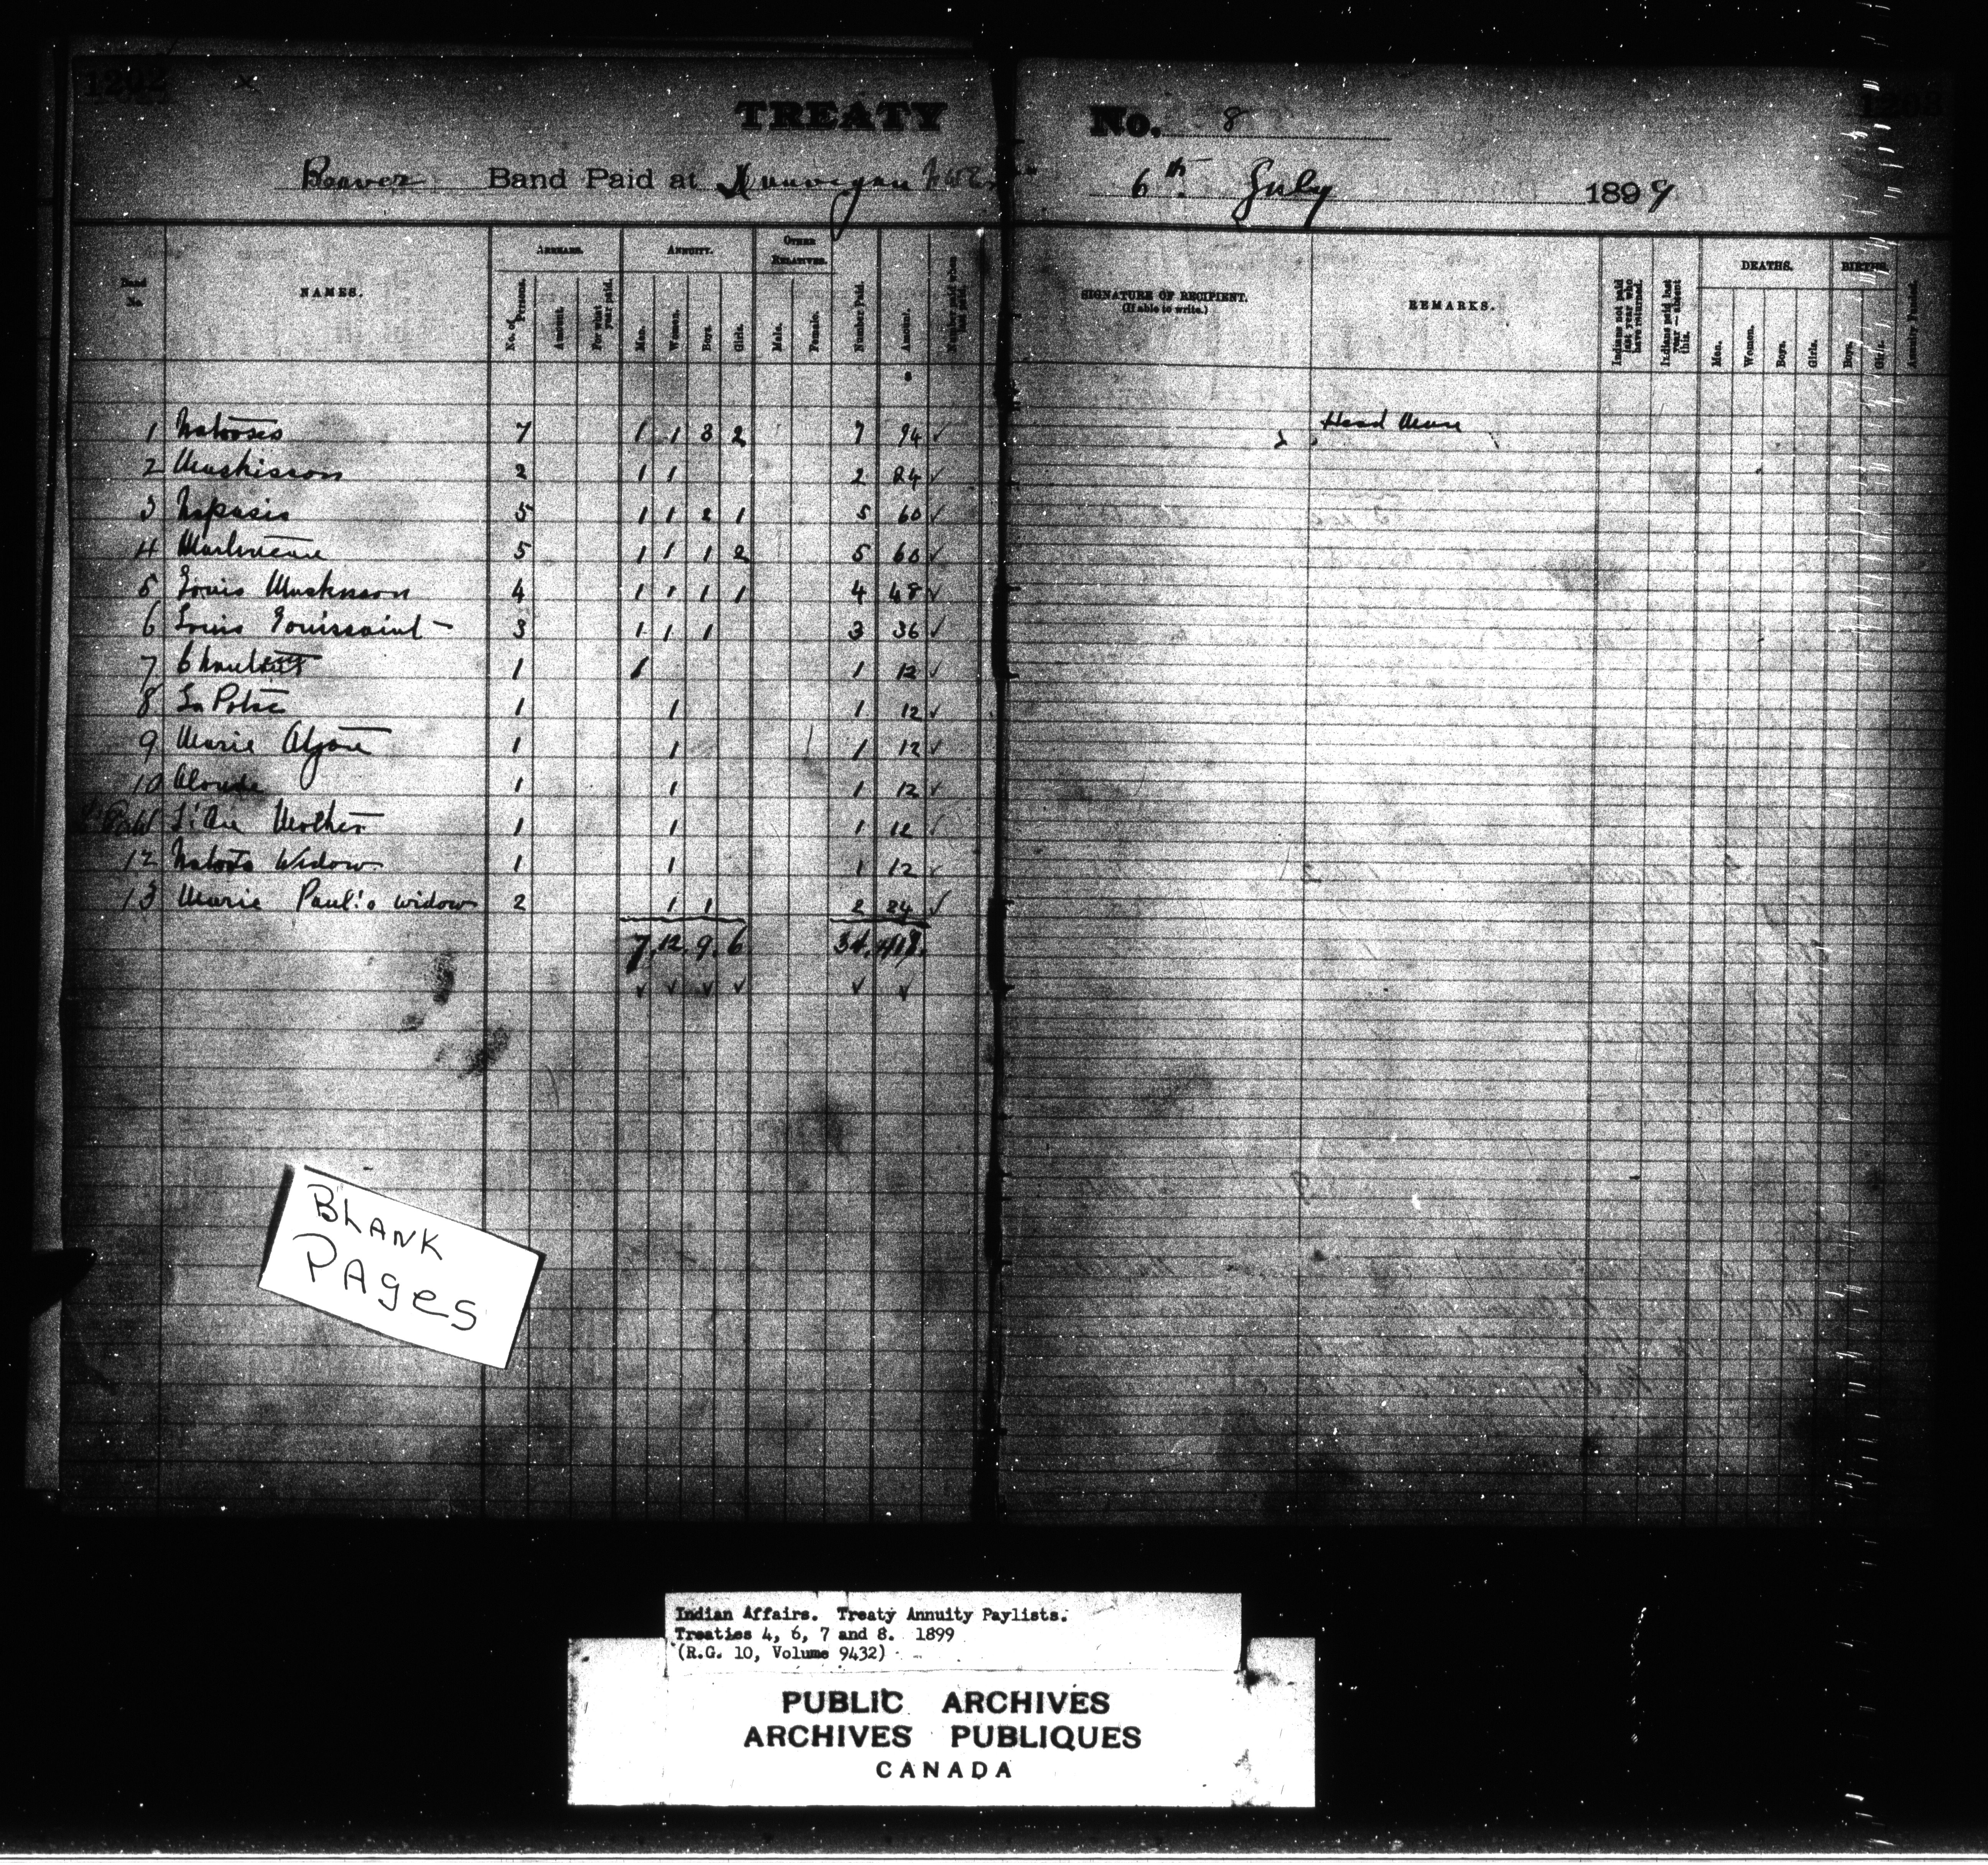 1202
x
TREATY No. 8
Beaver Band Paid at Dunvegan 6th July 1899
Band No.
NAMES.
ARREARS.
No. of Persons.
Amount.
For what year paid.
ANNUITY.
Men.
Women.
Boys.
Girls.
OTHER RELATIVES.
Male.
Female.
Number Paid.
Amount.
Number paid when last paid.
SIGNATURE OF RECIPIENT.
(If able to write.)
REMARKS.
Indians not paid last year who have returned.
Indians paid last year—absent this.
DEATHS.
Men.
Women.
Boys.
Girls.
BIRTHS.
Boys.
Girls.
Annuity Funded.
1 Natooses 7 1 1 3 2 7 94 ✓ Head Man
2 Muskisson 2 1 1 2 24 ✓
3 Napasis 5 1 1 2 1 5 60 ✓
4 5 1 1 1 2 5 60 ✓
5 Louis Muskisson 4 1 1 1 1 4 48 ✓
6 Louis Touissaint 3 1 1 1 3 36 ✓
7 1 1 1 12 ✓
8 1 1 1 12 ✓
9 Marie 1 1 1 12 ✓
10 1 1 1 12 ✓
Mother 1 1 1 12 ✓
12 Widow 1 1 1 12 ✓
13 Marie Paul's widow 2 1 1 2 24 ✓
7. 12. 9. 6 34. 418.
✓ ✓ ✓ ✓ ✓ ✓
BLANK
PAges
Indian Affairs. Treaty Annuity Paylists.
Treaties 4, 6, 7 and 8. 1899
(R.G. 10, Volume 9432)
PUBLIC ARCHIVES
ARCHIVES PUBLIQUES
CANADA